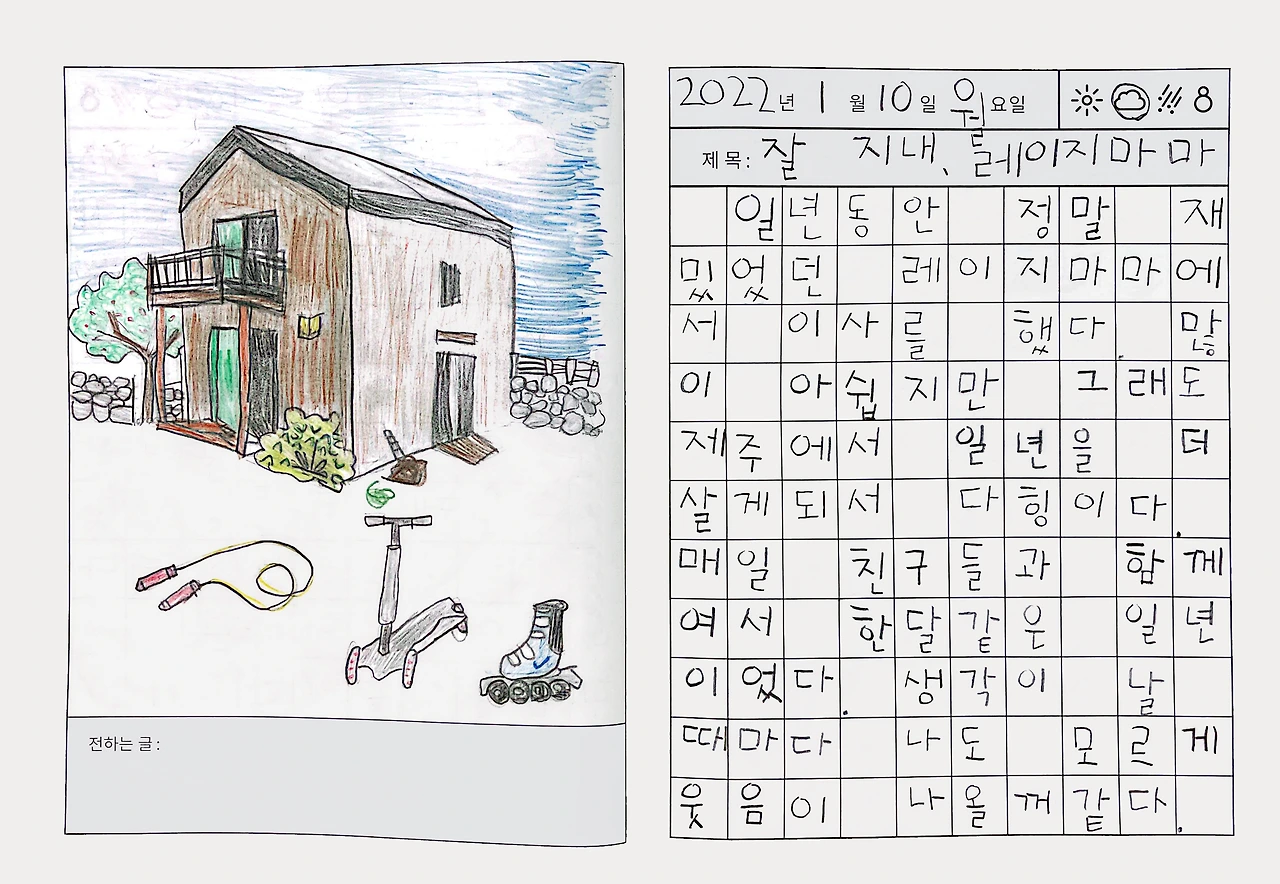 2022년 1월 10일 월요일
제목: 잘 지내, 레이지마마
일년동안 정말 재
밌었던 레이지마마에
서 이사를 했다. 많
이 아쉽지만 그래도
제주에서 일년을 더
살게되서 다힝이다.
매일 친구들과 함께
여서 한달같은 일년
이었다. 생각이 날
때마다 나도 모르게
웃음이 나올꺼같다.
전하는 글: